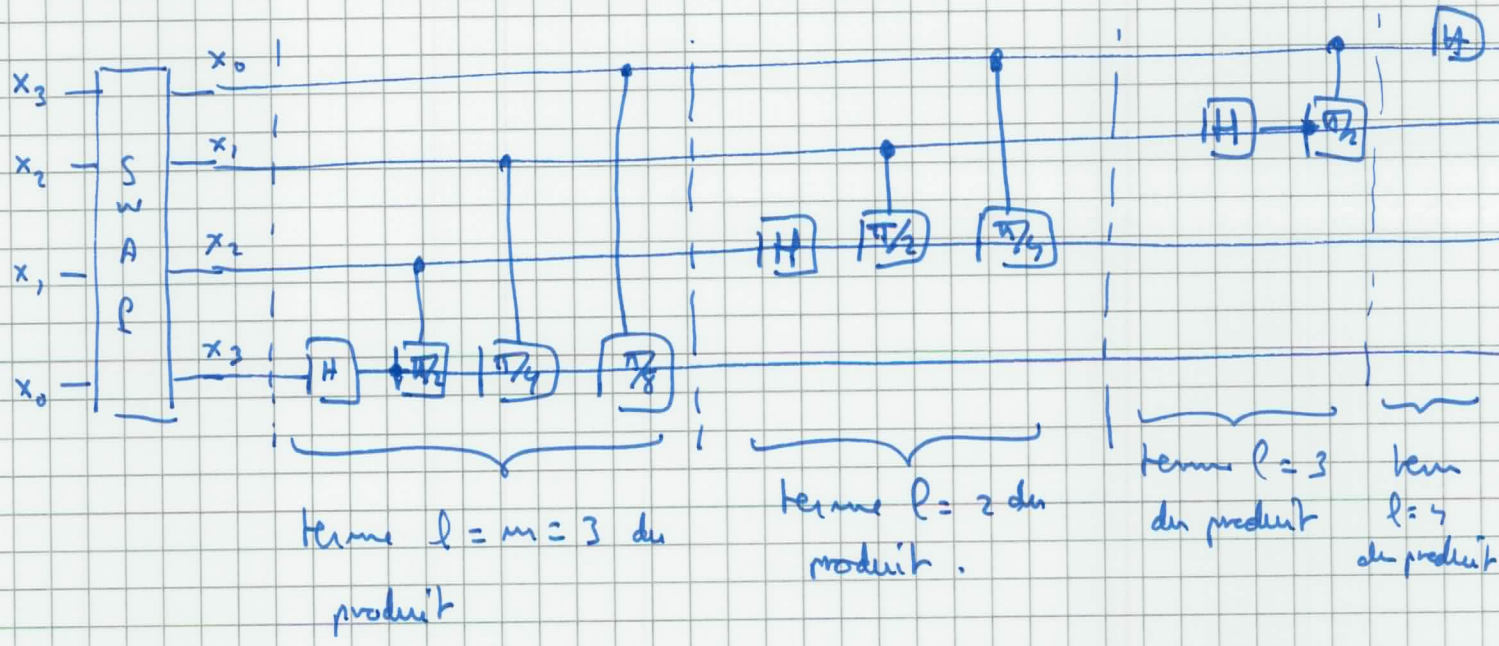 x₃
x₂
x₁
x₀
S
W
A
P
x₀
x₁
x₂
x₃
H
π/2
π/4
π/8
H
π/2
π/4
H
π/2
H
terme l = m = 3 du
produit
terme l = 2 du
produit.
terme l = 3
du produit
term
l = 4
du produit